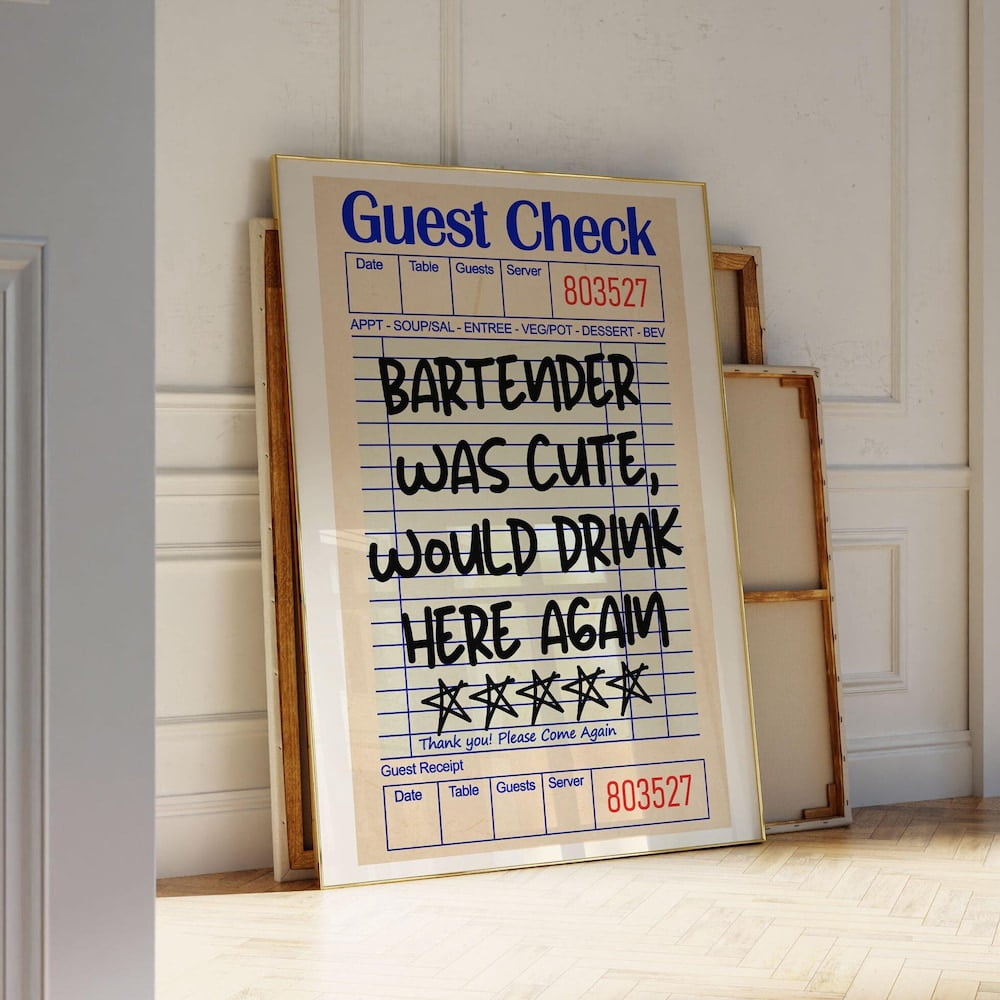 Guest Check
Date Table Guests Server 803527
APPT - SOUP/SAL - ENTREE - VEG/POT - DESSERT - BEV
BARTENDER
WAS CUTE,
WOULD DRINK
HERE AGAIN
Thank you! Please Come Again
Guest Receipt
Date Table Guests Server 803527